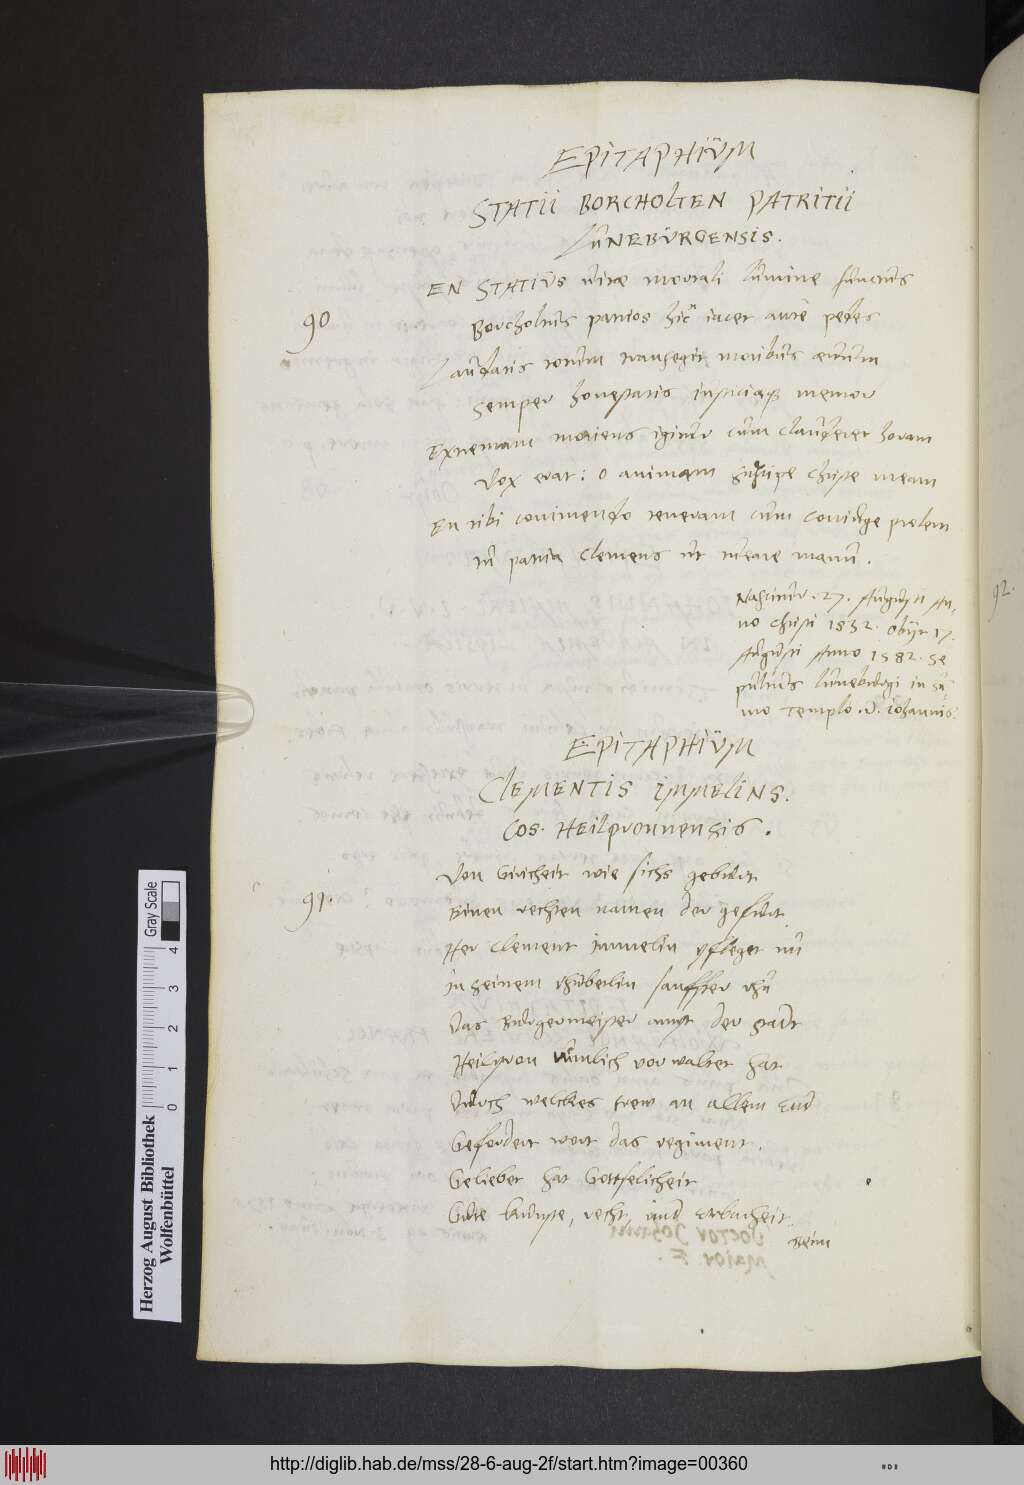 EPITAPHIUM
STATII BORCHOLTEN PATRITII
LUNEBURGENSIS.
EN STATIUS vitae mortali lumine functus
90
Borcholtus patrios hic iacet ante pedes
Laudatis totum transegit moribus aevum
Semper honestatis iustitiaeque memor
Extremam moriens igitur cum clauderet horam
Vox erat: o animam suscipe Christe meam
En tibi commendo teneram cum coniuge prolem
Tu patria Clemens ut tueare manu.
Nascitur. 27. Augusti An-
no Christi 1532. Obijt 17.
Augusti Anno 1582. Se
pultus Luneburgi in su
mo Templo. D. Iohannis.
92.
EPITAPHIUM
CLEMENTIS IMMELINS.
COS. HEILpronnensis.
Von wie sichs geburt
91.
Einen rechten namen der gefurt
Her Clement Immelin pfleger nu
In seinem sanffter rhu
Das Burgermeister ampt der stadt
Heilpron rumlich vorwaltet hat
Durch welches trew an allem End
Gefordert wort das regiment.
Geliebet hat Gottselicheit
Gute kunste, recht, und Erbarheit
Beim
Gray Scale
0 1 2 3 4
Herzog August Bibliothek
Wolfenbüttel
http://diglib.hab.de/mss/28-6-aug-2f/start.htm?image=00360